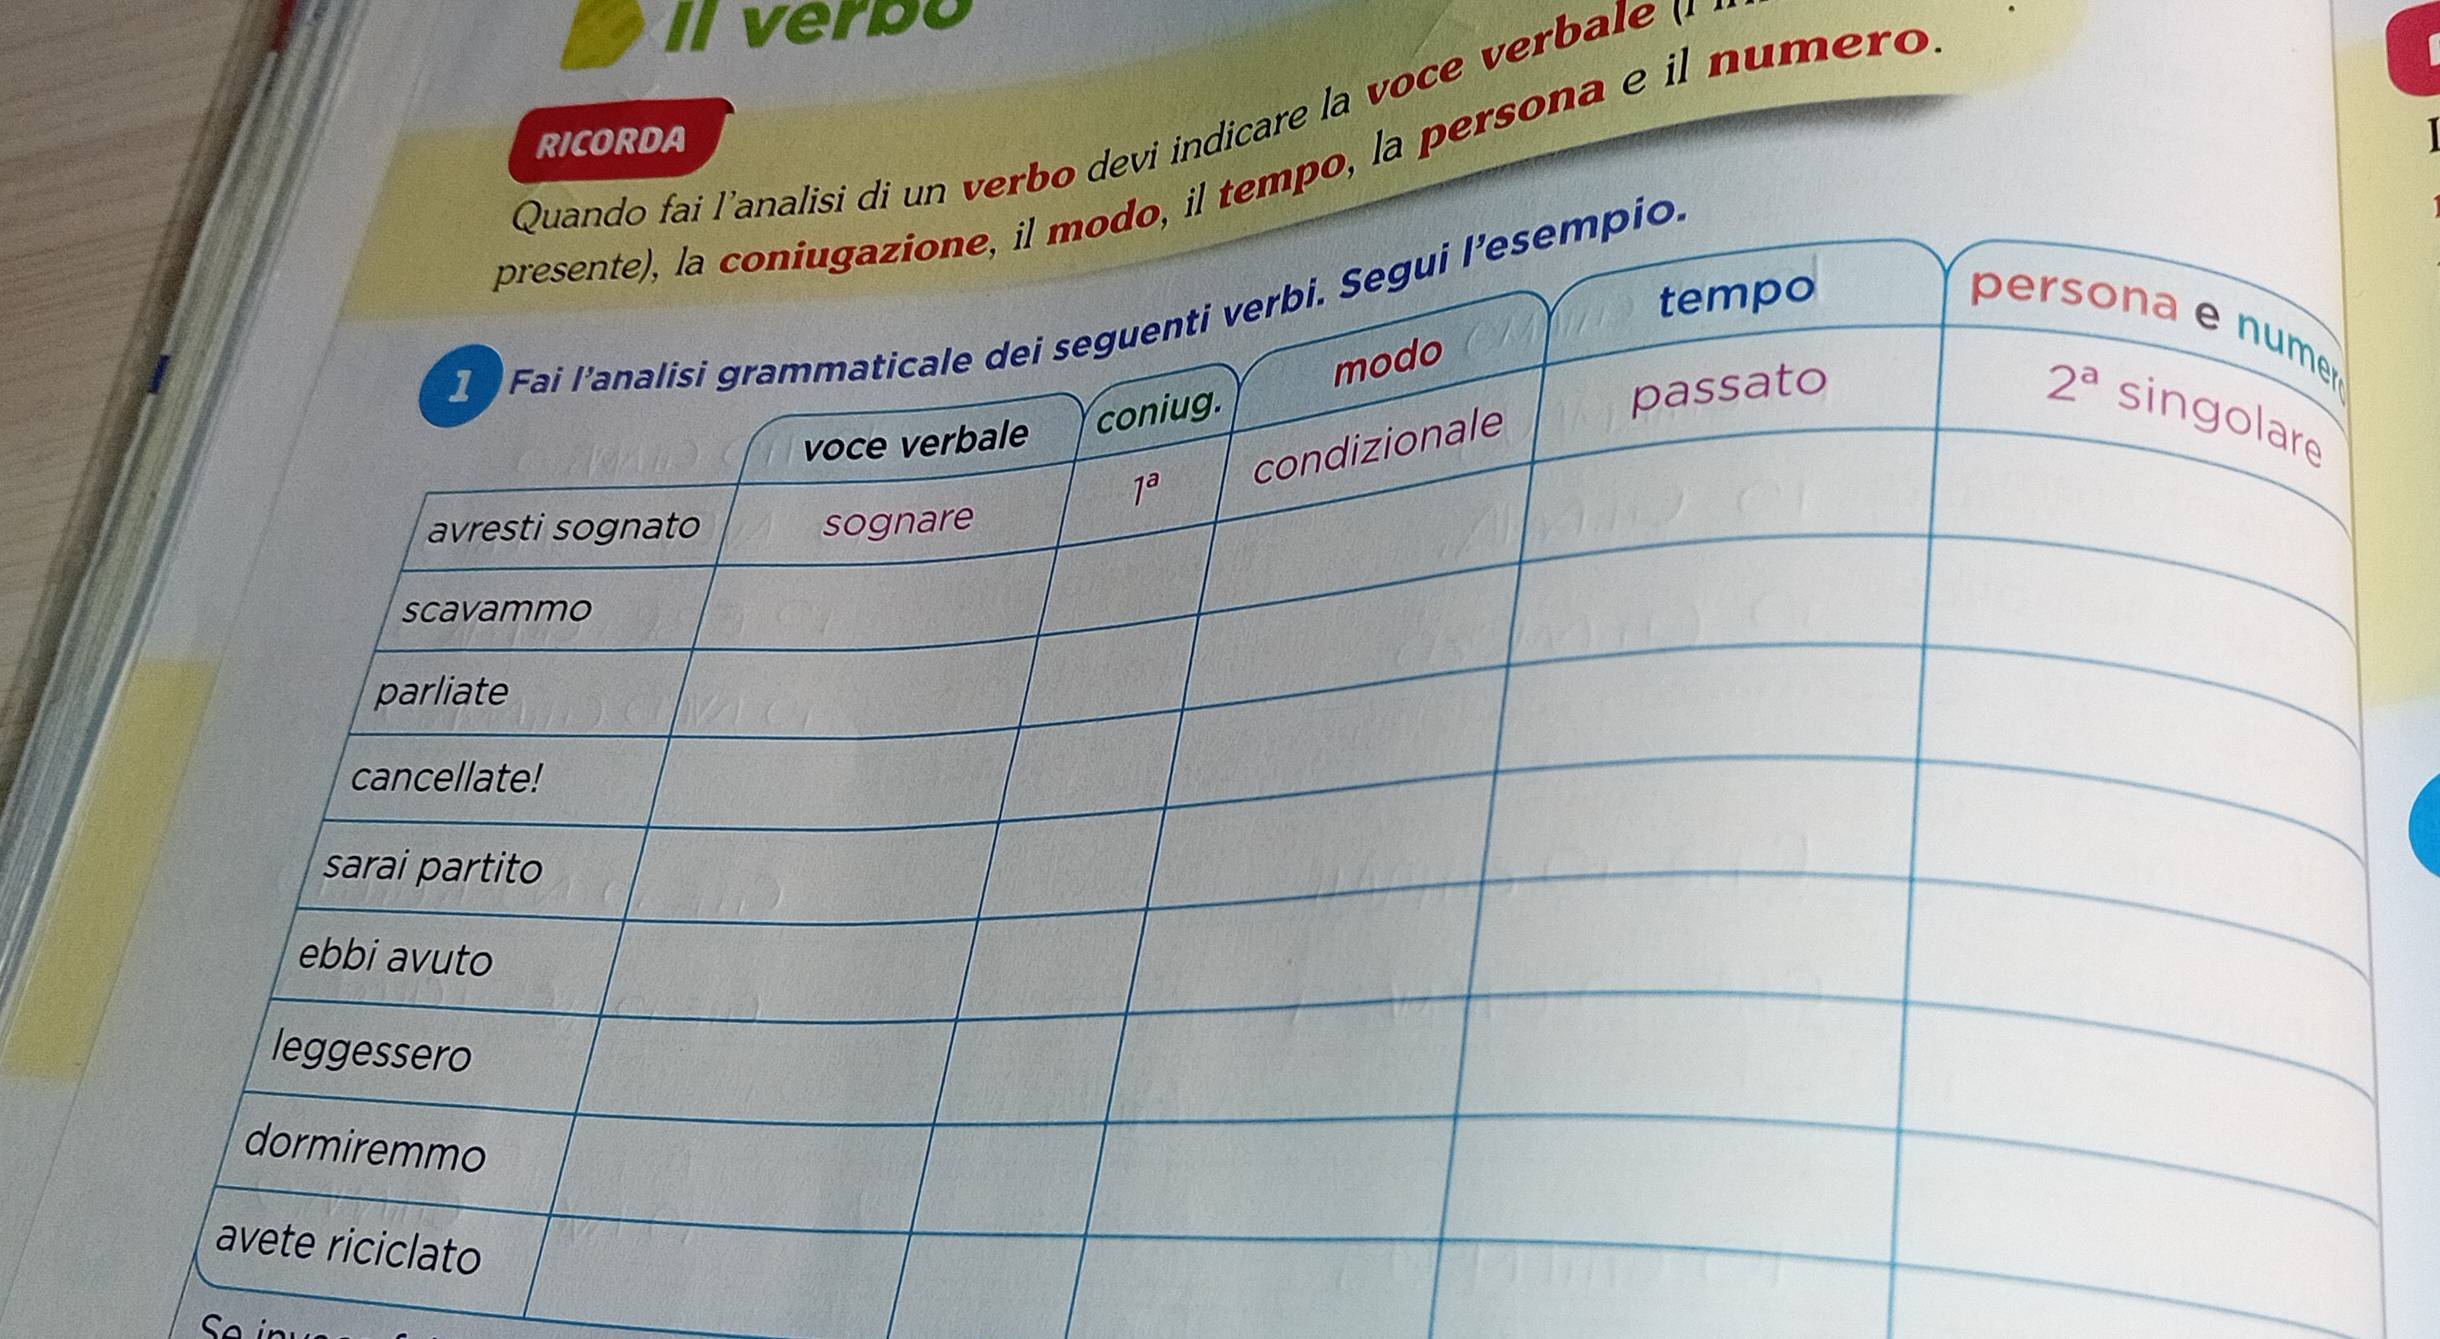 Il verbo
RICORDA
Quando fai l'analisi di un verbo devi indicare la voce verbale
presente), la coniugazione, il modo, il tempo, la persona e il numero.
1 Fai l'analisi grammaticale dei seguenti verbi. Segui l'esempio.
voce verbale coniug. modo tempo persona e numero
avresti sognato sognare 1ª condizionale passato 2ª singolare
scavammo
parliate
cancellate!
sarai partito
ebbi avuto
leggessero
dormiremmo
avete riciclato
Se